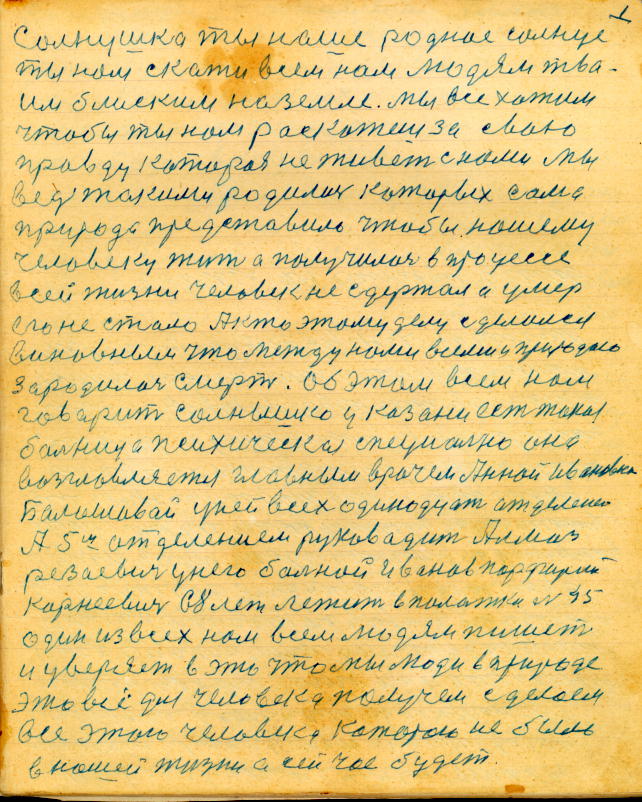 1
Солнушка ты наше родное солнце
ты ном скати всем ном людям тва-
им блиским наземле. мы все хотим
чтобы ты ном раскотеш за сваю
правду каторая не тивет снами мы
ведт такими родилис каторых сама
природа представила чтобы нашему
человеку тит а получилос в процессе
всей тизни человек не сдертал а умер
его не стало А кто этому делу сделался
виновным что мегду нами всеми и природаю
зародилас смерт. Об этом всем ном
говарит солнышко у казани ест такая
балница психическая специално она
возглавляется главным врачем Анной Ивановна
Балашавай у ней всех одинодцат атделений
А 5м атделением руковадит Алмаз
резаевич у него балной Иванов парфирий
Карнеевич 68 лет летит в палатки № 45
один из всех ном всем людям пишет
и уверяет в это что мы люди в природе
это всё для человека получем сделаем
все этого человека каторого не было
в нашей тизни а сейчас будет.